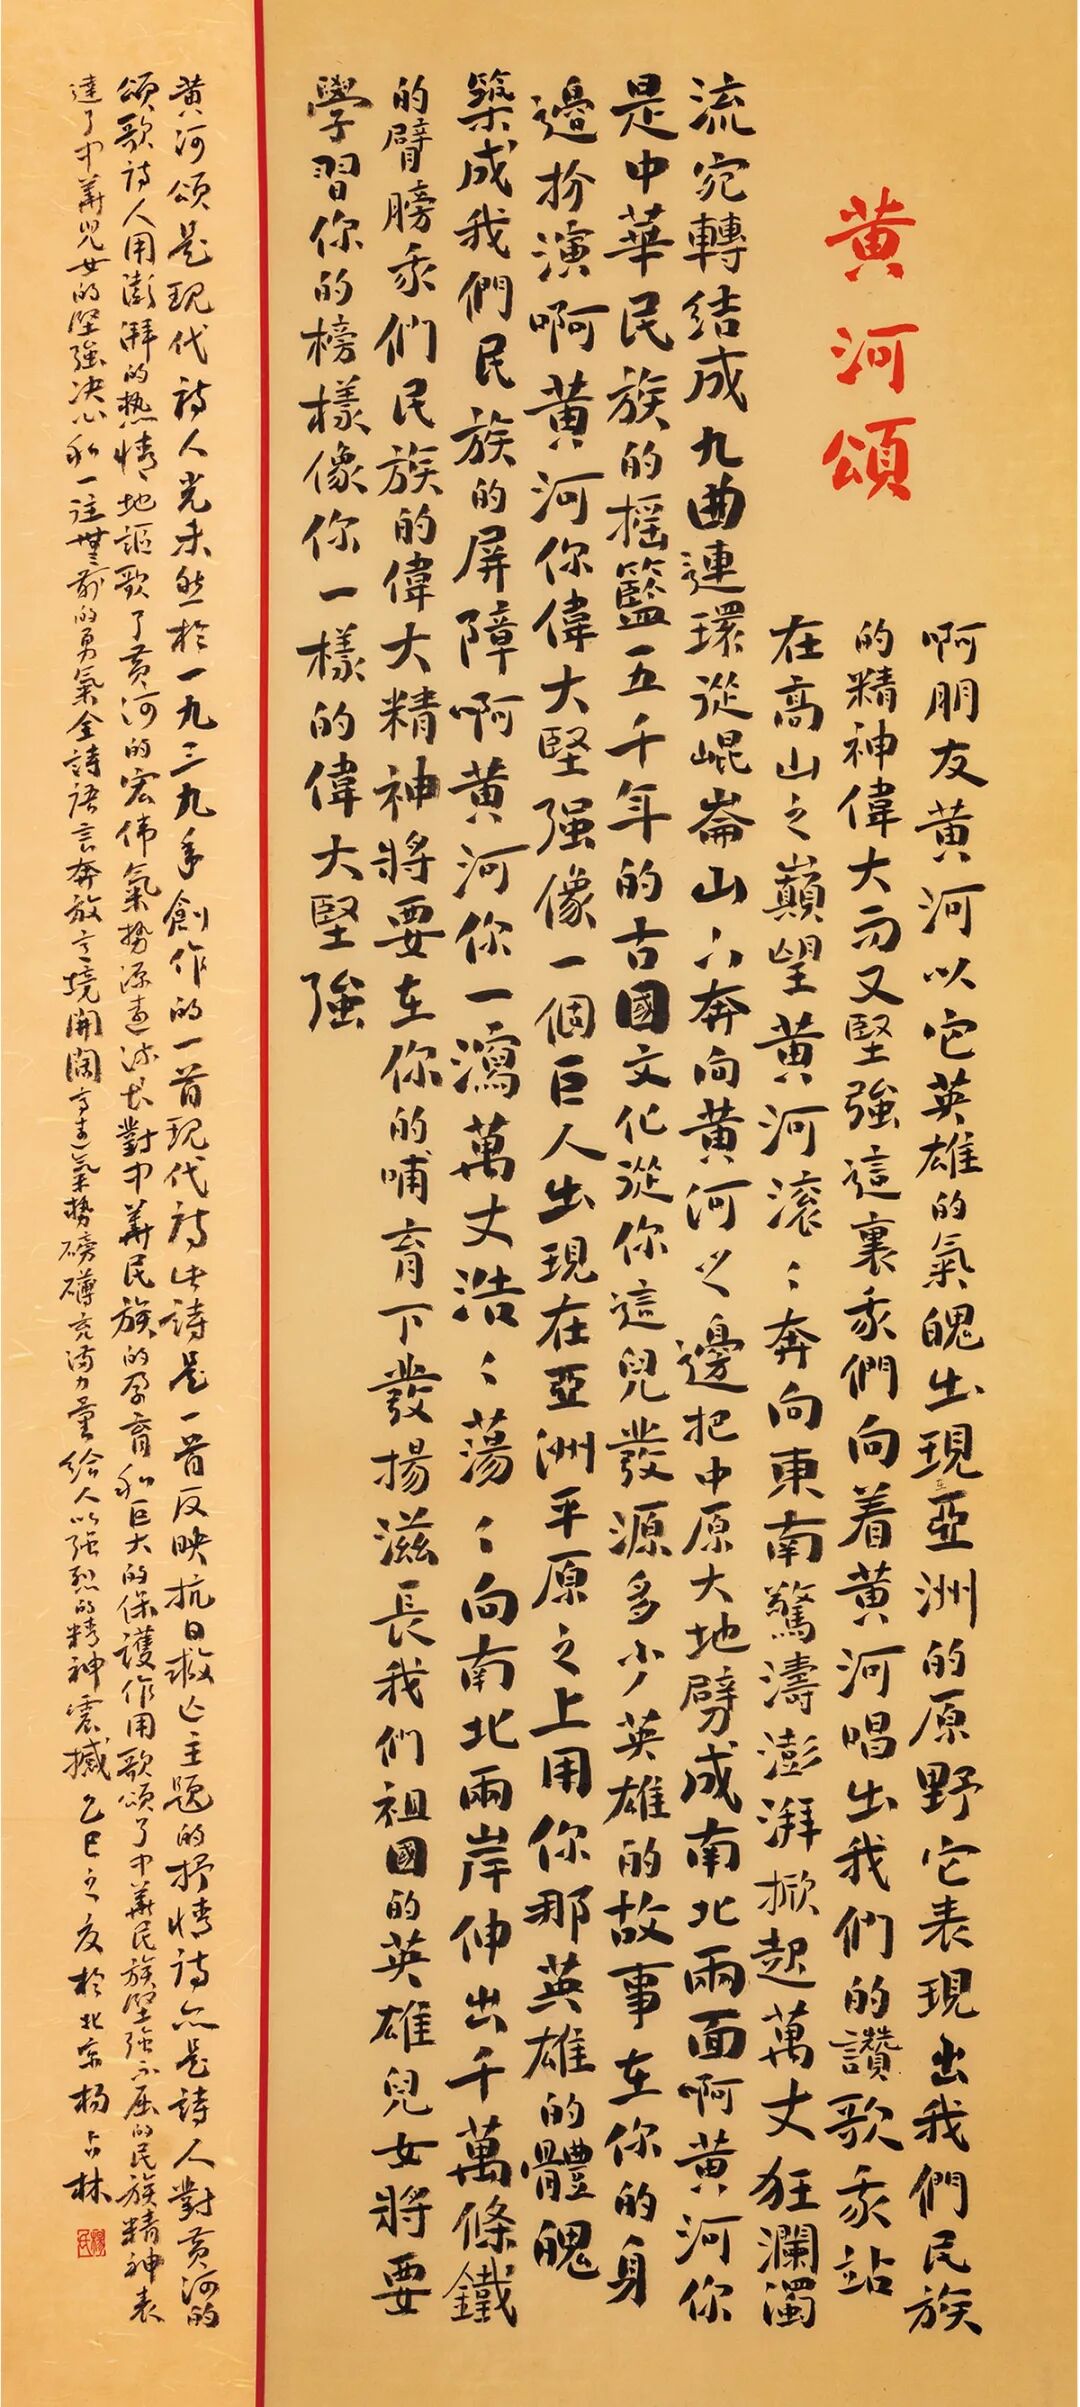 黄河頌
啊朋友黄河以它英雄的氣魄出現在亞洲的原野它表現出我們民族
的精神偉大而又堅強這裏我們向着黄河唱出我們的讚歌我站
在高山之巔望黄河滚〻奔向東南驚濤澎湃掀起萬丈狂瀾濁
流宛轉结成九曲連環從崐崙山下奔向黄河之邊把中原大地劈成南北兩面啊黄河你
是中華民族的摇籃五千年的古國文化從你這兒發源多少英雄的故事在你的身
邊扮演啊黄河你偉大堅强像一個巨人出現在亞洲平原之上用你那英雄的體魄
築成我們民族的屏障啊黄河你一瀉萬丈浩〻蕩〻向南北兩岸伸出千萬條鐵
的臂膀我們民族的偉大精神將要在你的哺育下發揚滋長我们祖國的英雄兒女將要
學習你的榜樣像你一樣的偉大堅強
黄河頌是現代詩人光未然於一九三九年創作的一首現代詩此詩是一首反映抗日救亡主题的抒情詩亦是詩人對黄河的
頌歌詩人用澎湃的热情地謳歌了黄河的宏伟氣势源遠流长對中華民族的孕育和巨大的保護作用歌頌了中華民族堅強不屈的民族精神表
達了中華兒女的堅強决心和一往無前的勇氣全詩語言奔放意境開阔高遠氣势磅礴充满力量给人以强烈的精神震撼 乙巳之夏於北京杨占林